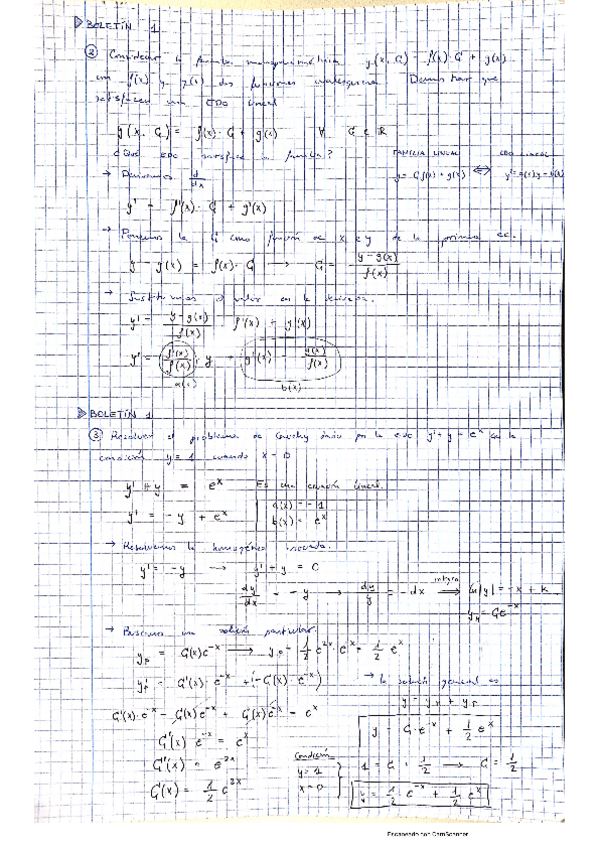 ▷ BOLETÍN 1
② Considerar la familia monoparamétrica y(x,C) = f(x)·C + g(x)
con f(x) y g(x) dos funciones cualesquiera. Demostrar que
satisfacen una EDO lineal
y(x,C) = f(x)·C + g(x) ∀ C ∈ ℝ
¿Qué EDO satisface la familia?
FAMILIA LINEAL ⟺ EDO LINEAL
y = C f(x) + g(x) y' = a(x)y + b(x)
→ Derivamos d/dx
y' = f'(x)·C + g'(x)
→ Ponemos la C como función de x e y de la primera ec.
y - g(x) = f(x)·C → C = (y - g(x))/f(x)
→ Sustituimos el valor en la derivada.
y' = (y - g(x))/f(x) · f'(x) + g'(x)
y' = (f'(x)/f(x))·y + g'(x) - g(x)/f(x)
a(x) b(x)
▷ BOLETÍN 1
③ Resolver el problema de Cauchy dado por la EDO y' + y = eˣ con la
condición y = 1 cuando x = 0
y' + y = eˣ Es una ecuación lineal.
y' = -y + eˣ a(x) = -1
b(x) = eˣ
→ Resolvemos la homogénea asociada.
y' = -y → y' + y = 0
dy/dx = -y → dy/y = -dx ⟹ integro ln|y| = -x + k
y_H = Ce⁻ˣ
→ Buscamos una solución particular.
y_p = C(x)e⁻ˣ → y_p = 1/2 e²ˣ · e⁻ˣ = 1/2 eˣ
y_p' = C'(x)·e⁻ˣ + (-C(x)·e⁻ˣ)
→ la solución general es
y = y_H + y_p
C'(x)·e⁻ˣ - C(x)e⁻ˣ + C(x)e⁻ˣ = eˣ
y = C·e⁻ˣ + 1/2 eˣ
C'(x) e⁻ˣ = eˣ
C'(x) = e²ˣ
C(x) = 1/2 e²ˣ
Condición
y = 1
x = 0
1 = C + 1/2 → C = 1/2
y = 1/2 e⁻ˣ + 1/2 eˣ
Escaneado con CamScanner